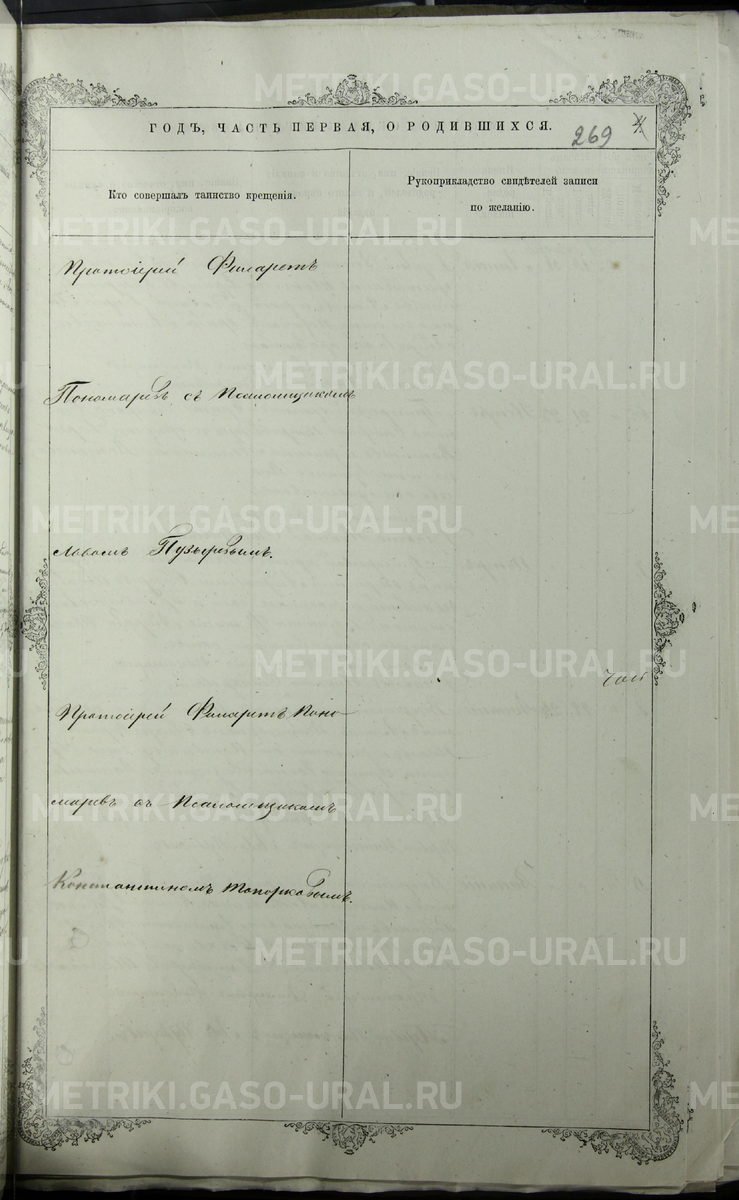 ГОДЪ, ЧАСТЬ ПЕРВАЯ, О РОДИВШИХСЯ.
269
Кто совершалъ таинство крещенія.
Рукоприкладство свидѣтелей записи
по желанію.
Протоіерей Филаретъ
Пономаревъ съ Псаломщикомъ
Пузыревымъ.
Протоіерей Филаретъ Поно-
маревъ съ Псаломщикомъ
Константиномъ Топорковымъ.
METRIKI.GASO-URAL.RU